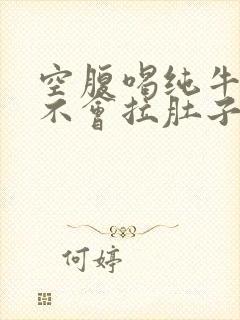 空腹喝纯牛
不会拉肚子
何婷